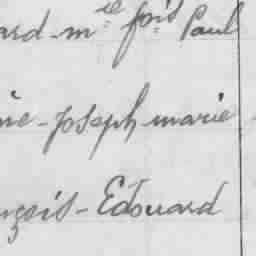 ard-m.ie fçois Paul
ine-joseph marie
nçois-Edouard